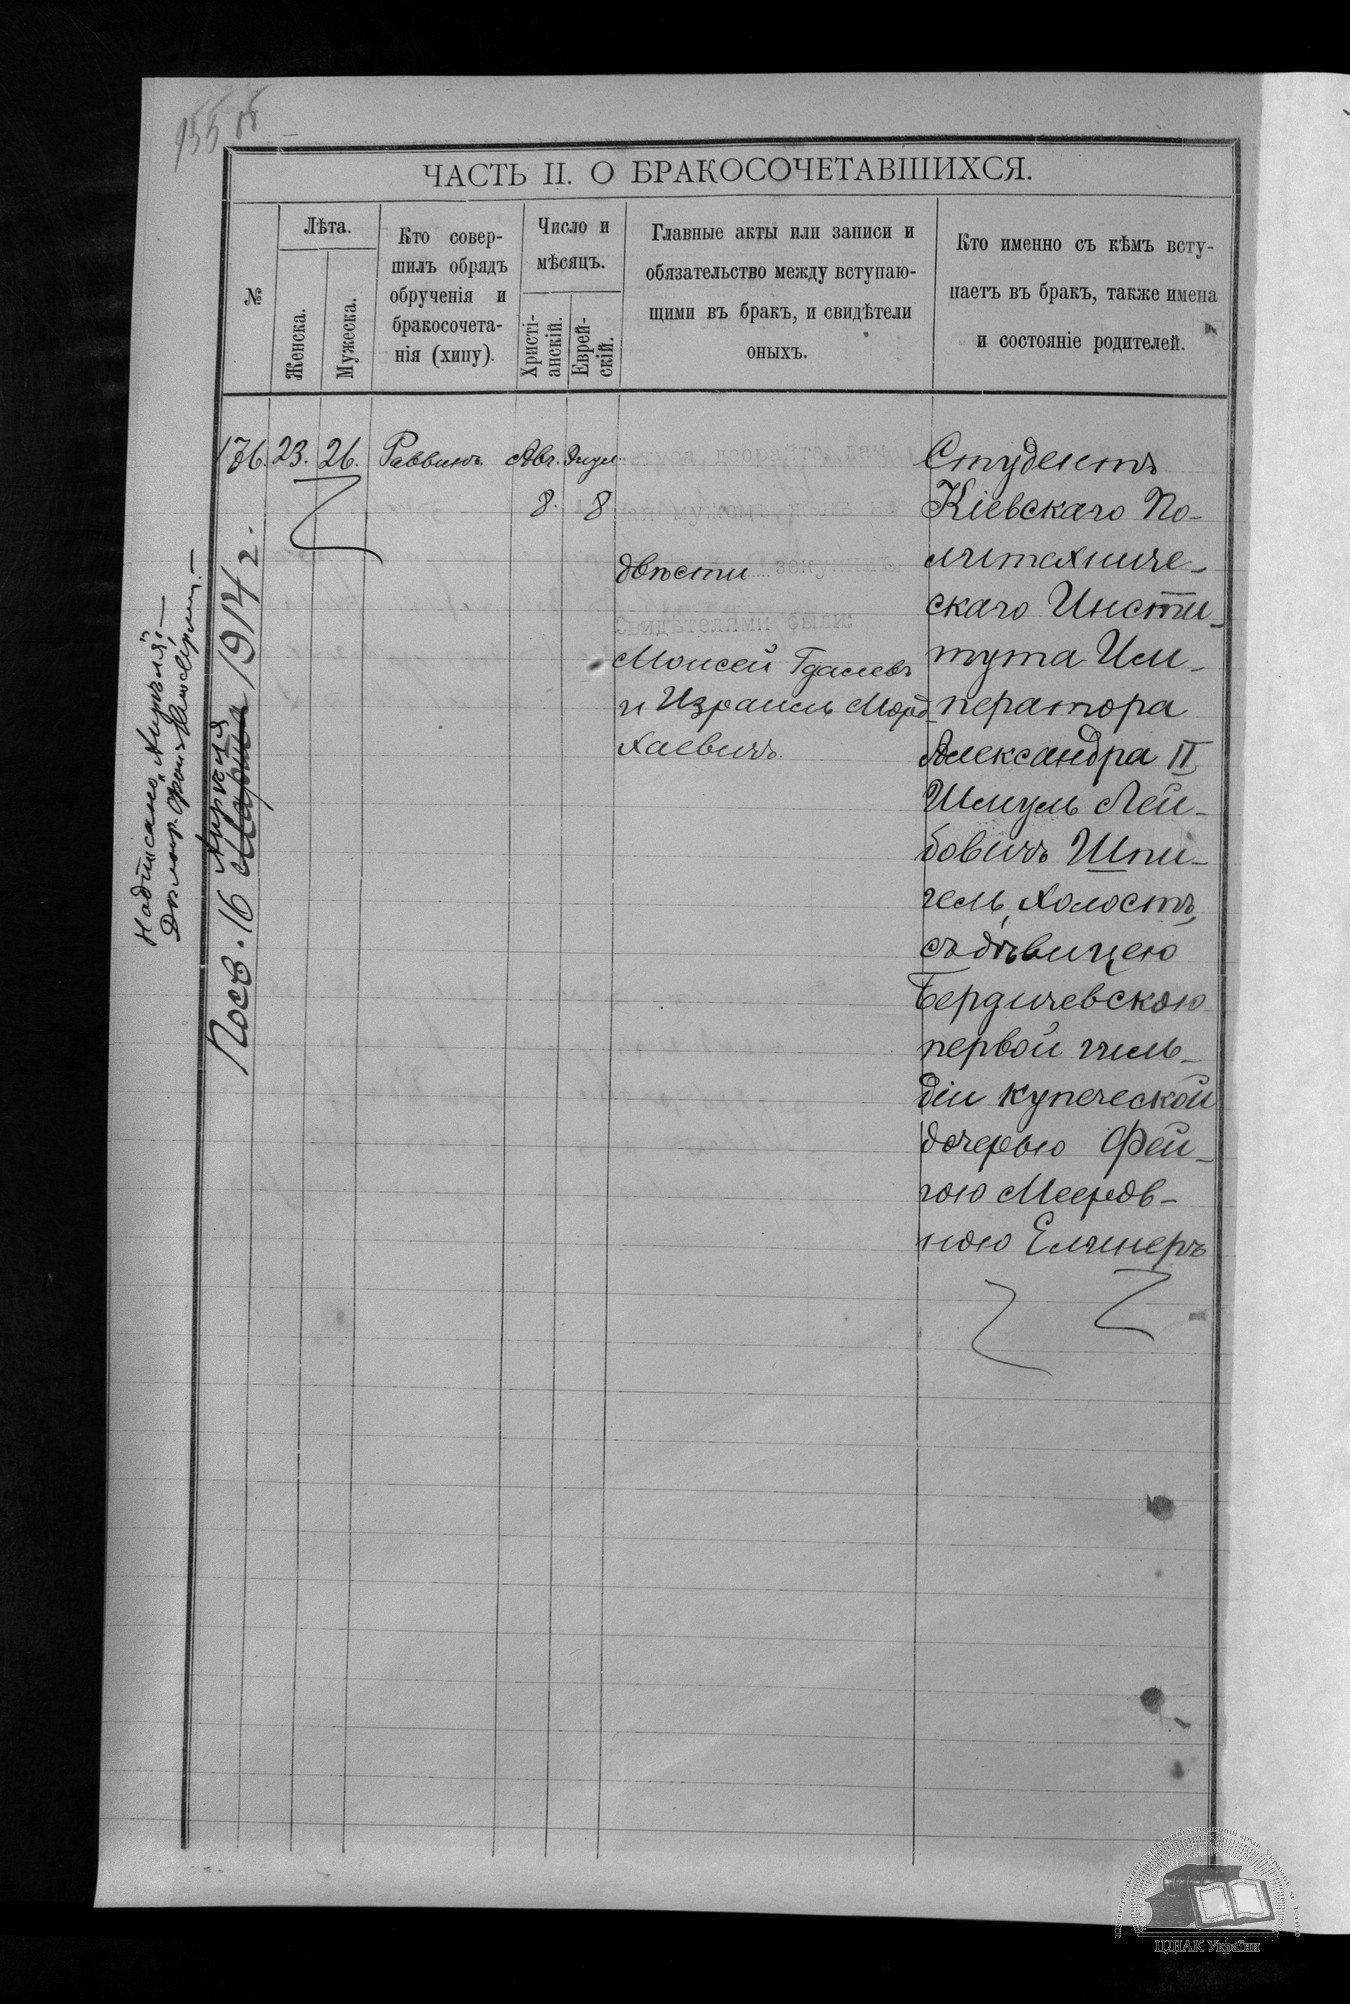 155 об
ЧАСТЬ II. О БРАКОСОЧЕТАВШИХСЯ.
№
Лѣта.
Женска.
Мужеска.
Кто совер-
шилъ обрядъ
обрученія и
бракосочета-
нія (хипу).
Число и
мѣсяцъ.
Христі-
анскій.
Еврей-
скій.
Главные акты или записи и
обязательство между вступаю-
щими въ бракъ, и свидѣтели
оныхъ.
Кто именно съ кѣмъ всту-
паетъ въ бракъ, также имена
и состояніе родителей.
176. 23. 26. Раввинъ. Авг. Элул.
8. 8
двѣсти
Свидѣтелями были:
Моисей Гдалевъ
и Израиль Морд
хаевичъ.
Студентъ
Кіевскаго По-
литехниче-
скаго Инсти-
тута Им-
ператора
Александра II
Шмуль Лей-
бовичъ Шпи-
гель, холостъ,
съ дѣвицею
Бердичевскою
первой гиль-
діи купеческой
дочерью Фей-
гою Мееров-
ною Елинеръ
Надписано „Апрѣля".—
Апрѣля
16 Марта 1914 г.
ЦДІАК України